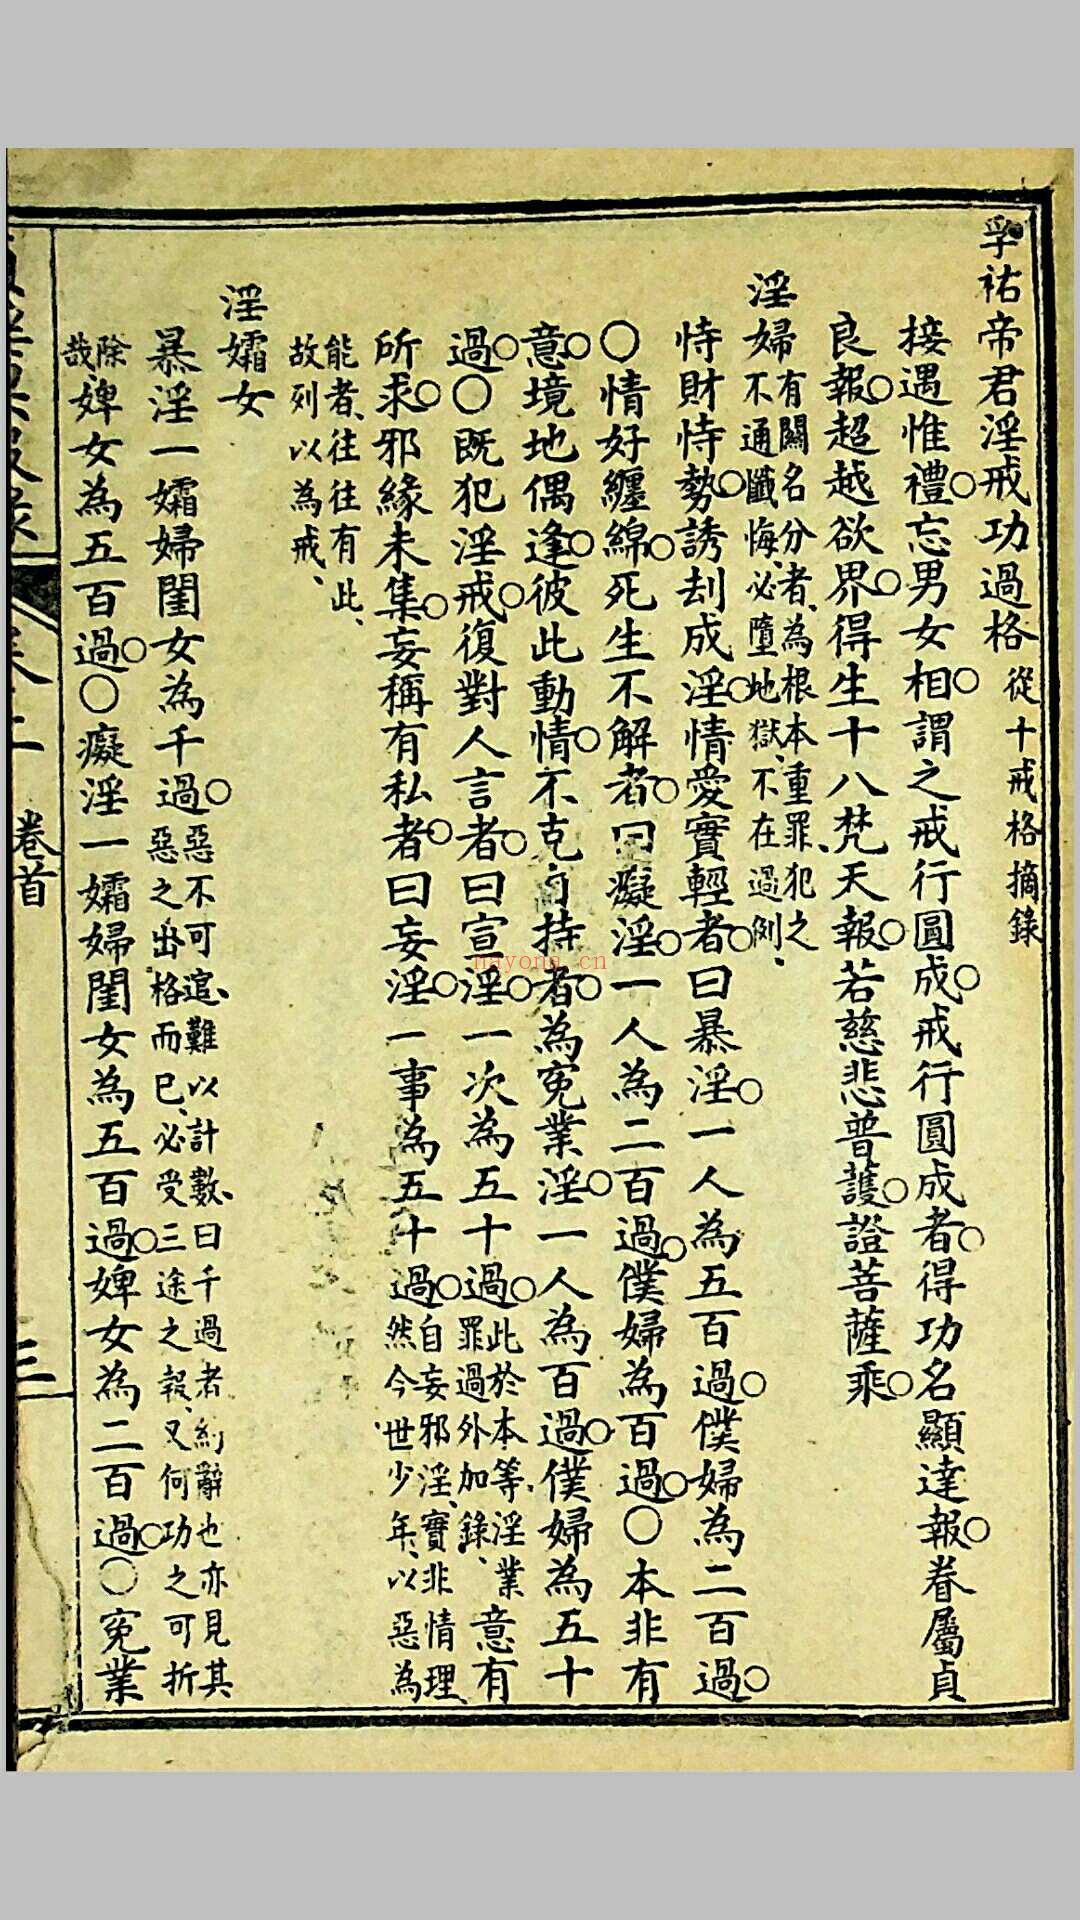 孚祐帝君淫戒功過格從十戒格摘錄
接遇惟禮。忘男女相。謂之戒行圓成。戒行圓成者。得功名顯達報。眷屬貞
良報。超越欲界。得生十八梵天報。若慈悲普護。證菩薩乘。
淫婦有關名分者、為根本重罪、犯之、不通懺悔、必墮地獄、不在過例、
恃財恃勢。誘刦成淫。情愛實輕者。曰暴淫。一人為五百過。僕婦為二百過。
〇情好纏綿。死生不解者。曰癡淫。一人為二百過。僕婦為百過。〇本非有
意。境地偶逢。彼此動情。不克自持者。為寃業淫。一人為百過。僕婦為五十
過。〇既犯淫戒。復對人言者。曰宣淫。一次為五十過。此於本等淫業罪過外加錄、意有
所求。邪緣未集。妄稱有私者。曰妄淫。一事為五十過。自妄邪淫、實非情理、然今世少年、以惡為
能者、往往有此、故列以為戒、
淫孀女
暴淫一孀婦閨女為千過。惡不可逭、難以計數、曰千過者、約辭也、亦見其惡之出格而已、必受三途之報、又何功之可折
除哉婢女為五百過。〇癡淫一孀婦閨女為五百過。婢女為二百過。〇寃業
卷首
三
hayong.cn